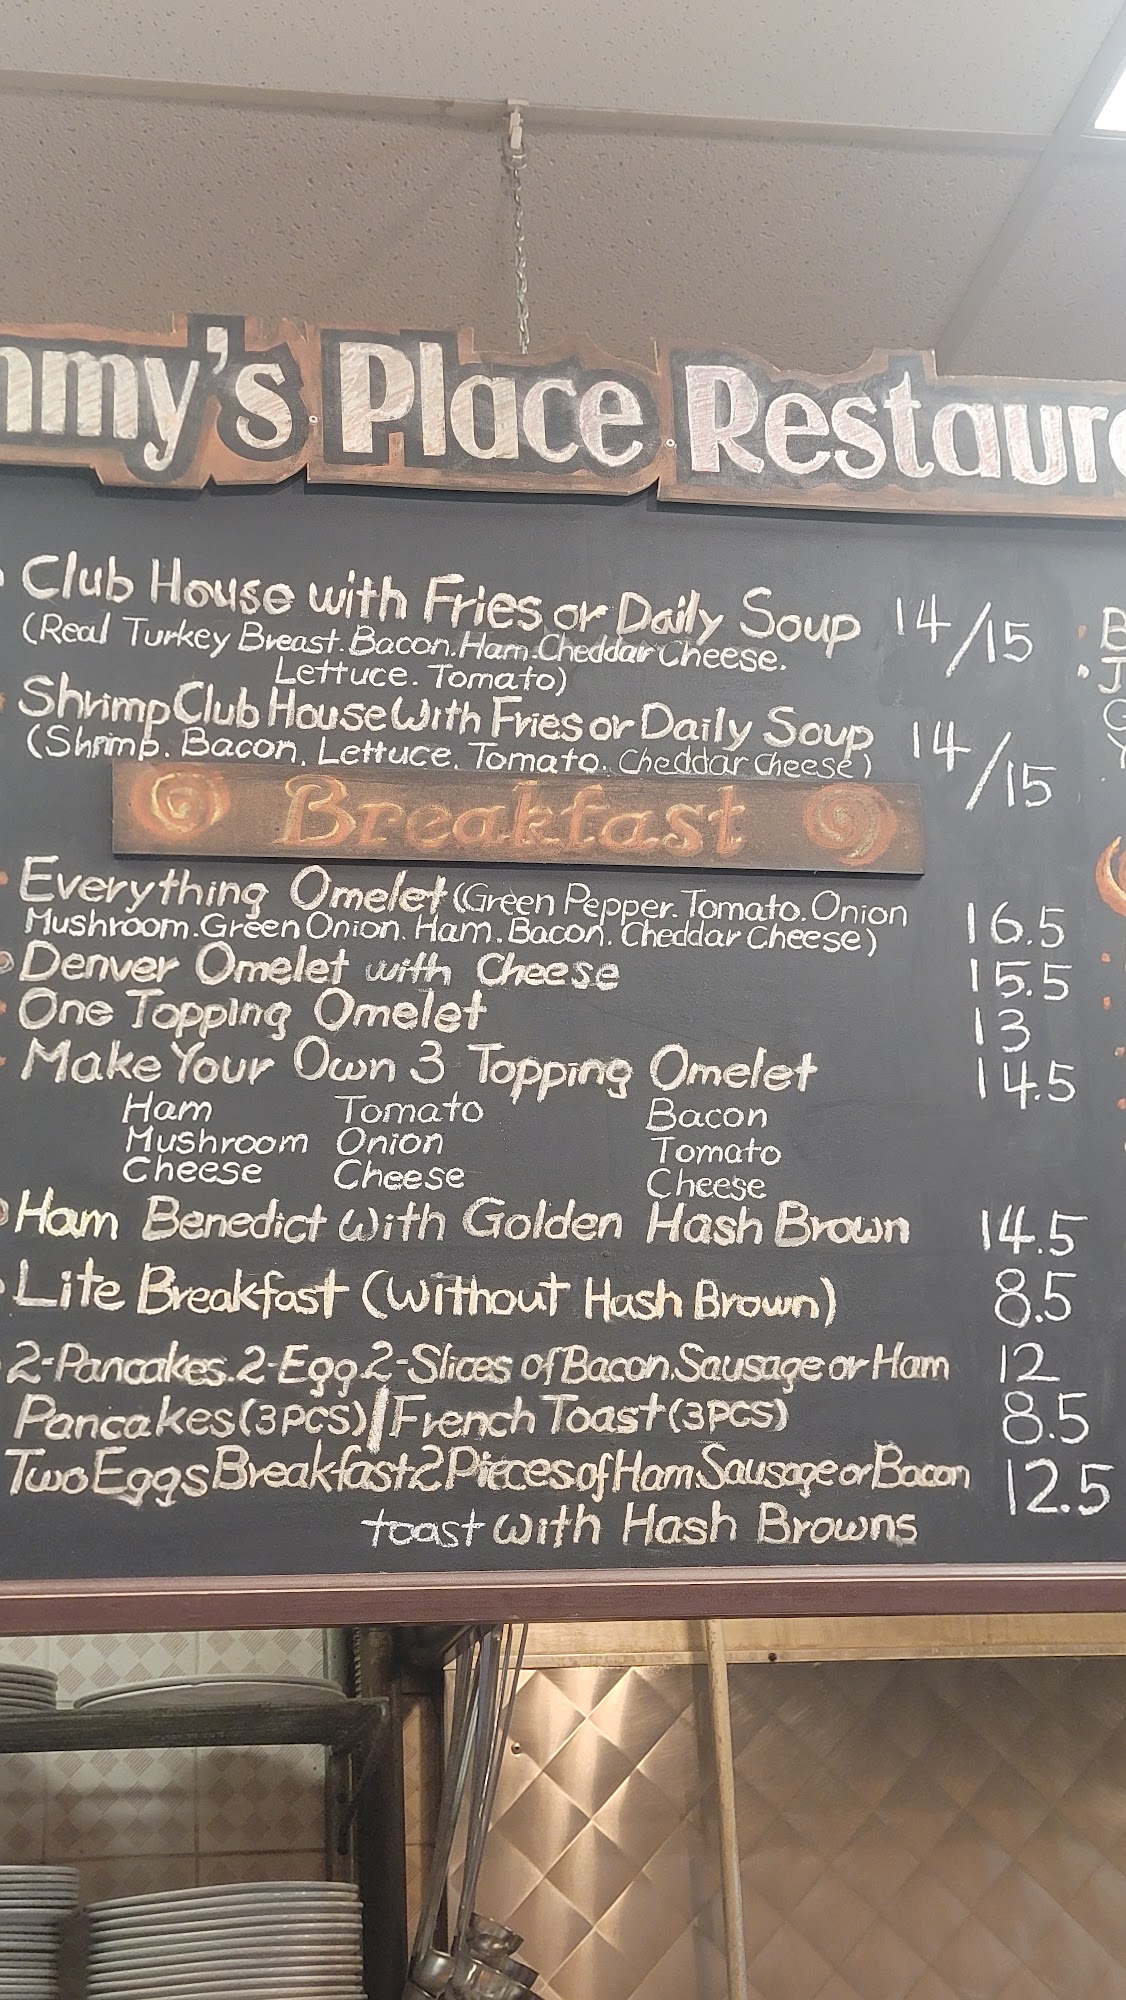 mmy's Place Restaur
Club House with Fries or Daily Soup 14/15
(Real Turkey Breast. Bacon. Ham. Cheddar Cheese.
Lettuce. Tomato)
Shrimp Club House With Fries or Daily Soup 14/15
(Shrimp. Bacon, Lettuce. Tomato. Cheddar Cheese)
Breakfast
Everything Omelet (Green Pepper. Tomato. Onion
Mushroom. Green Onion. Ham. Bacon. Cheddar Cheese) 16.5
Denver Omelet with Cheese 15.5
One Topping Omelet 13
Make Your Own 3 Topping Omelet 14.5
Ham Tomato Bacon
Mushroom Onion Tomato
Cheese Cheese Cheese
Ham Benedict With Golden Hash Brown 14.5
Lite Breakfast (Without Hash Brown) 8.5
2-Pancakes. 2-Egg 2-Slices of Bacon. Sausage or Ham 12
Pancakes (3PCS) / French Toast (3PCS) 8.5
Two Eggs Breakfast 2 Pieces of Ham. Sausage or Bacon 12.5
toast with Hash Browns